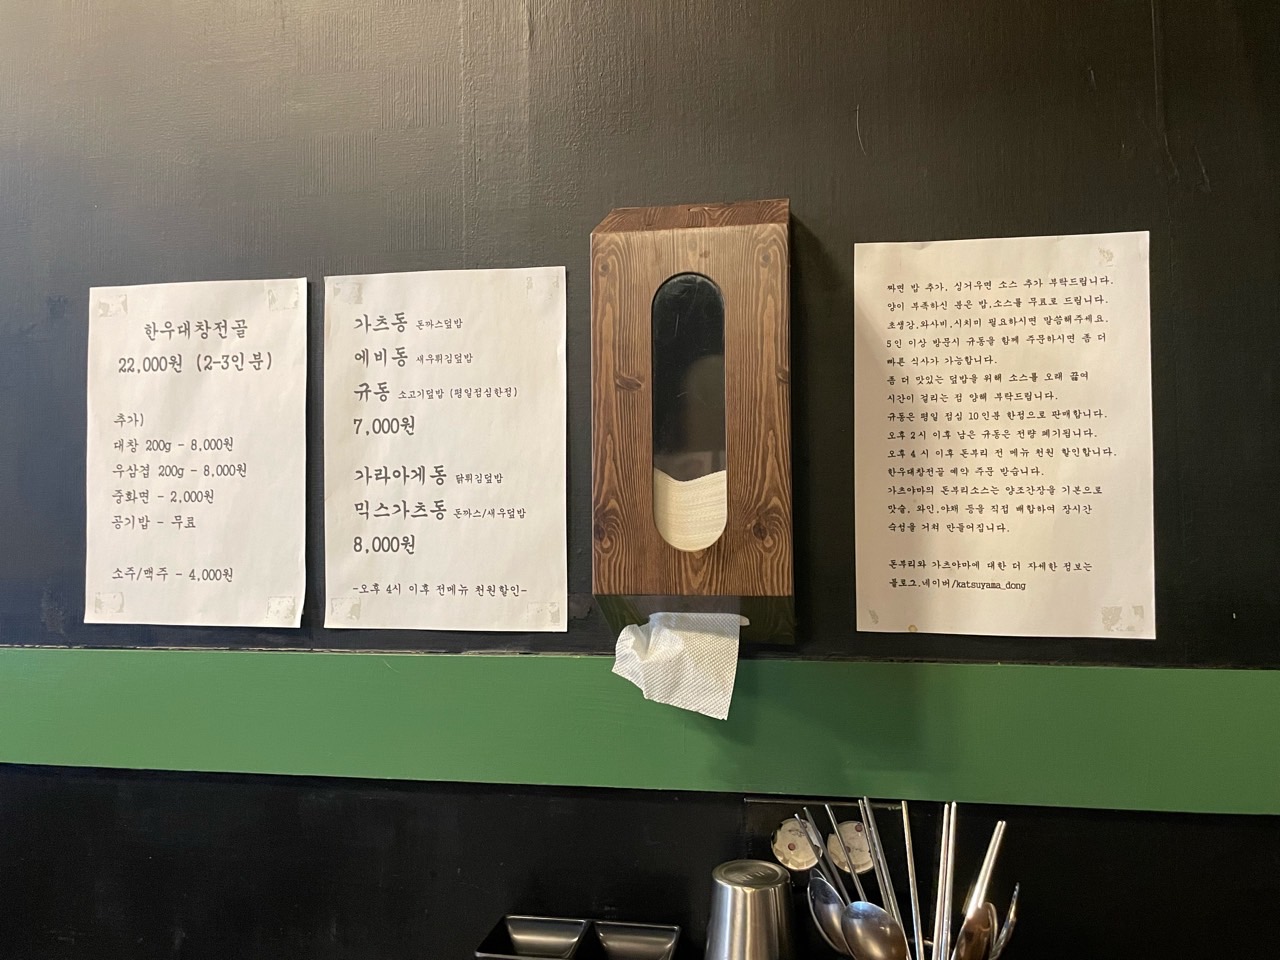 한우대창전골
22,000원 (2-3인분)
추가)
대창 200g - 8,000원
우삼겹 200g - 8,000원
중화면 - 2,000원
공기밥 - 무료
소주/맥주 - 4,000원
가츠동 돈까스덮밥
에비동 새우튀김덮밥
규동 소고기덮밥 (평일점심한정)
7,000원
가라아게동 닭튀김덮밥
믹스가츠동 돈까스/새우덮밥
8,000원
-오후 4시 이후 전메뉴 천원할인-
짜면 밥 추가, 싱거우면 소스 추가 부탁드립니다.
양이 부족하신 분은 밥,소스를 무료로 드립니다.
초생강,와사비,시치미 필요하시면 말씀해주세요.
5인 이상 방문시 규동을 함께 주문하시면 좀 더
빠른 식사가 가능합니다.
좀 더 맛있는 덮밥을 위해 소스를 오래 끓여
시간이 걸리는 점 양해 부탁드립니다.
규동은 평일 점심 10인분 한정으로 판매합니다.
오후 2시 이후 남은 규동은 전량 폐기됩니다.
오후 4시 이후 돈부리 전 메뉴 천원 할인합니다.
한우대창전골 예약 주문 받습니다.
가츠야마의 돈부리소스는 양조간장을 기본으로
맛술, 와인,야채 등을 직접 배합하여 장시간
숙성을 거쳐 만들어집니다.
돈부리와 가츠야마에 대한 더 자세한 정보는
블로그.네이버/katsuyama_dong